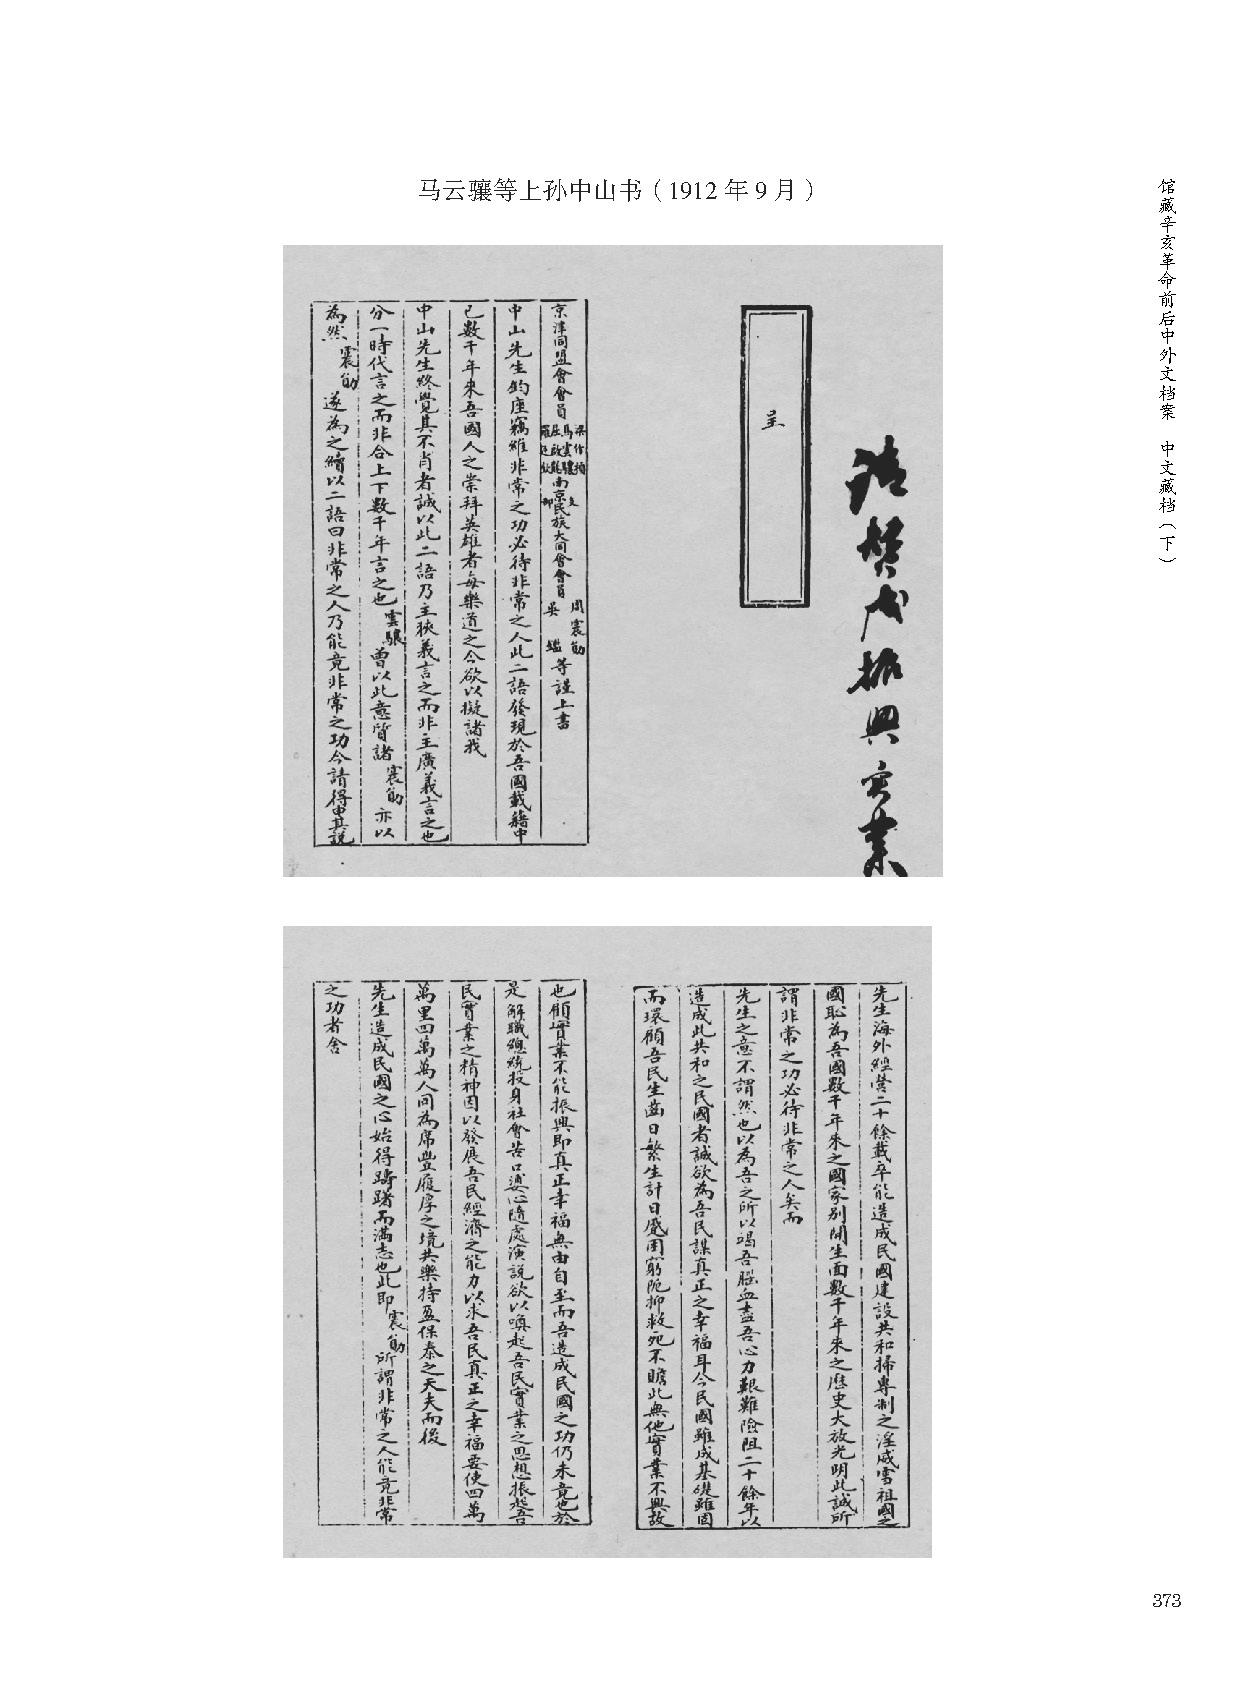 马云骧等上孙中山书（1912 年 9 月）
馆藏辛亥革命前后中外文档案 中文藏档（下）
振興實業
呈
京津同盟會會員馬雲驤南京民族大同會會員周震勛吳鑑等謹上書
中山先生鈞座竊維非常之功必待非常之人此二語發現於吾國載籍中
已數千年來吾國人之崇拜英雄者每樂道之今欲以擬諸我
中山先生終覺其不肖者誠以此二語乃主狹義言之而非主廣義言之也
分一時代言之而非合上下數千年言之也雲驤曾以此意質諸震勛亦以
為然震勛遂為之續以二語曰非常之人乃能竟非常之功今請得申其說
先生海外經營二十餘載卒能造成民國建設共和掃專制之淫威雪祖國之
國恥為吾國數千年來之國家別開生面數千年來之歷史大放光明此誠所
謂非常之功必待非常之人矣而
先生之意不謂然也以為吾之所以竭吾腦血盡吾心力艱難險阻二十餘年以
造成此共和之民國者誠欲為吾民謀真正之幸福耳今民國雖成基礎雖固
而環顧吾民生齒日繁生計日蹙困窮阨抑救死不贍此無他實業不興故
也顧實業不能振興即真正幸福無由自至而吾造成民國之功仍未竟也於
是解職總統投身社會苦口婆心隨處演說欲以喚起吾民實業之思想振起吾
民實業之精神因以發展吾民經濟之能力以求吾民真正之幸福要使四萬
萬里四萬萬人同為席豐履厚之境共樂持盈保泰之天夫而後
先生造成民國之心始得躊躇而滿志也此即震勛所謂非常之人能竟非常
之功者舍
373